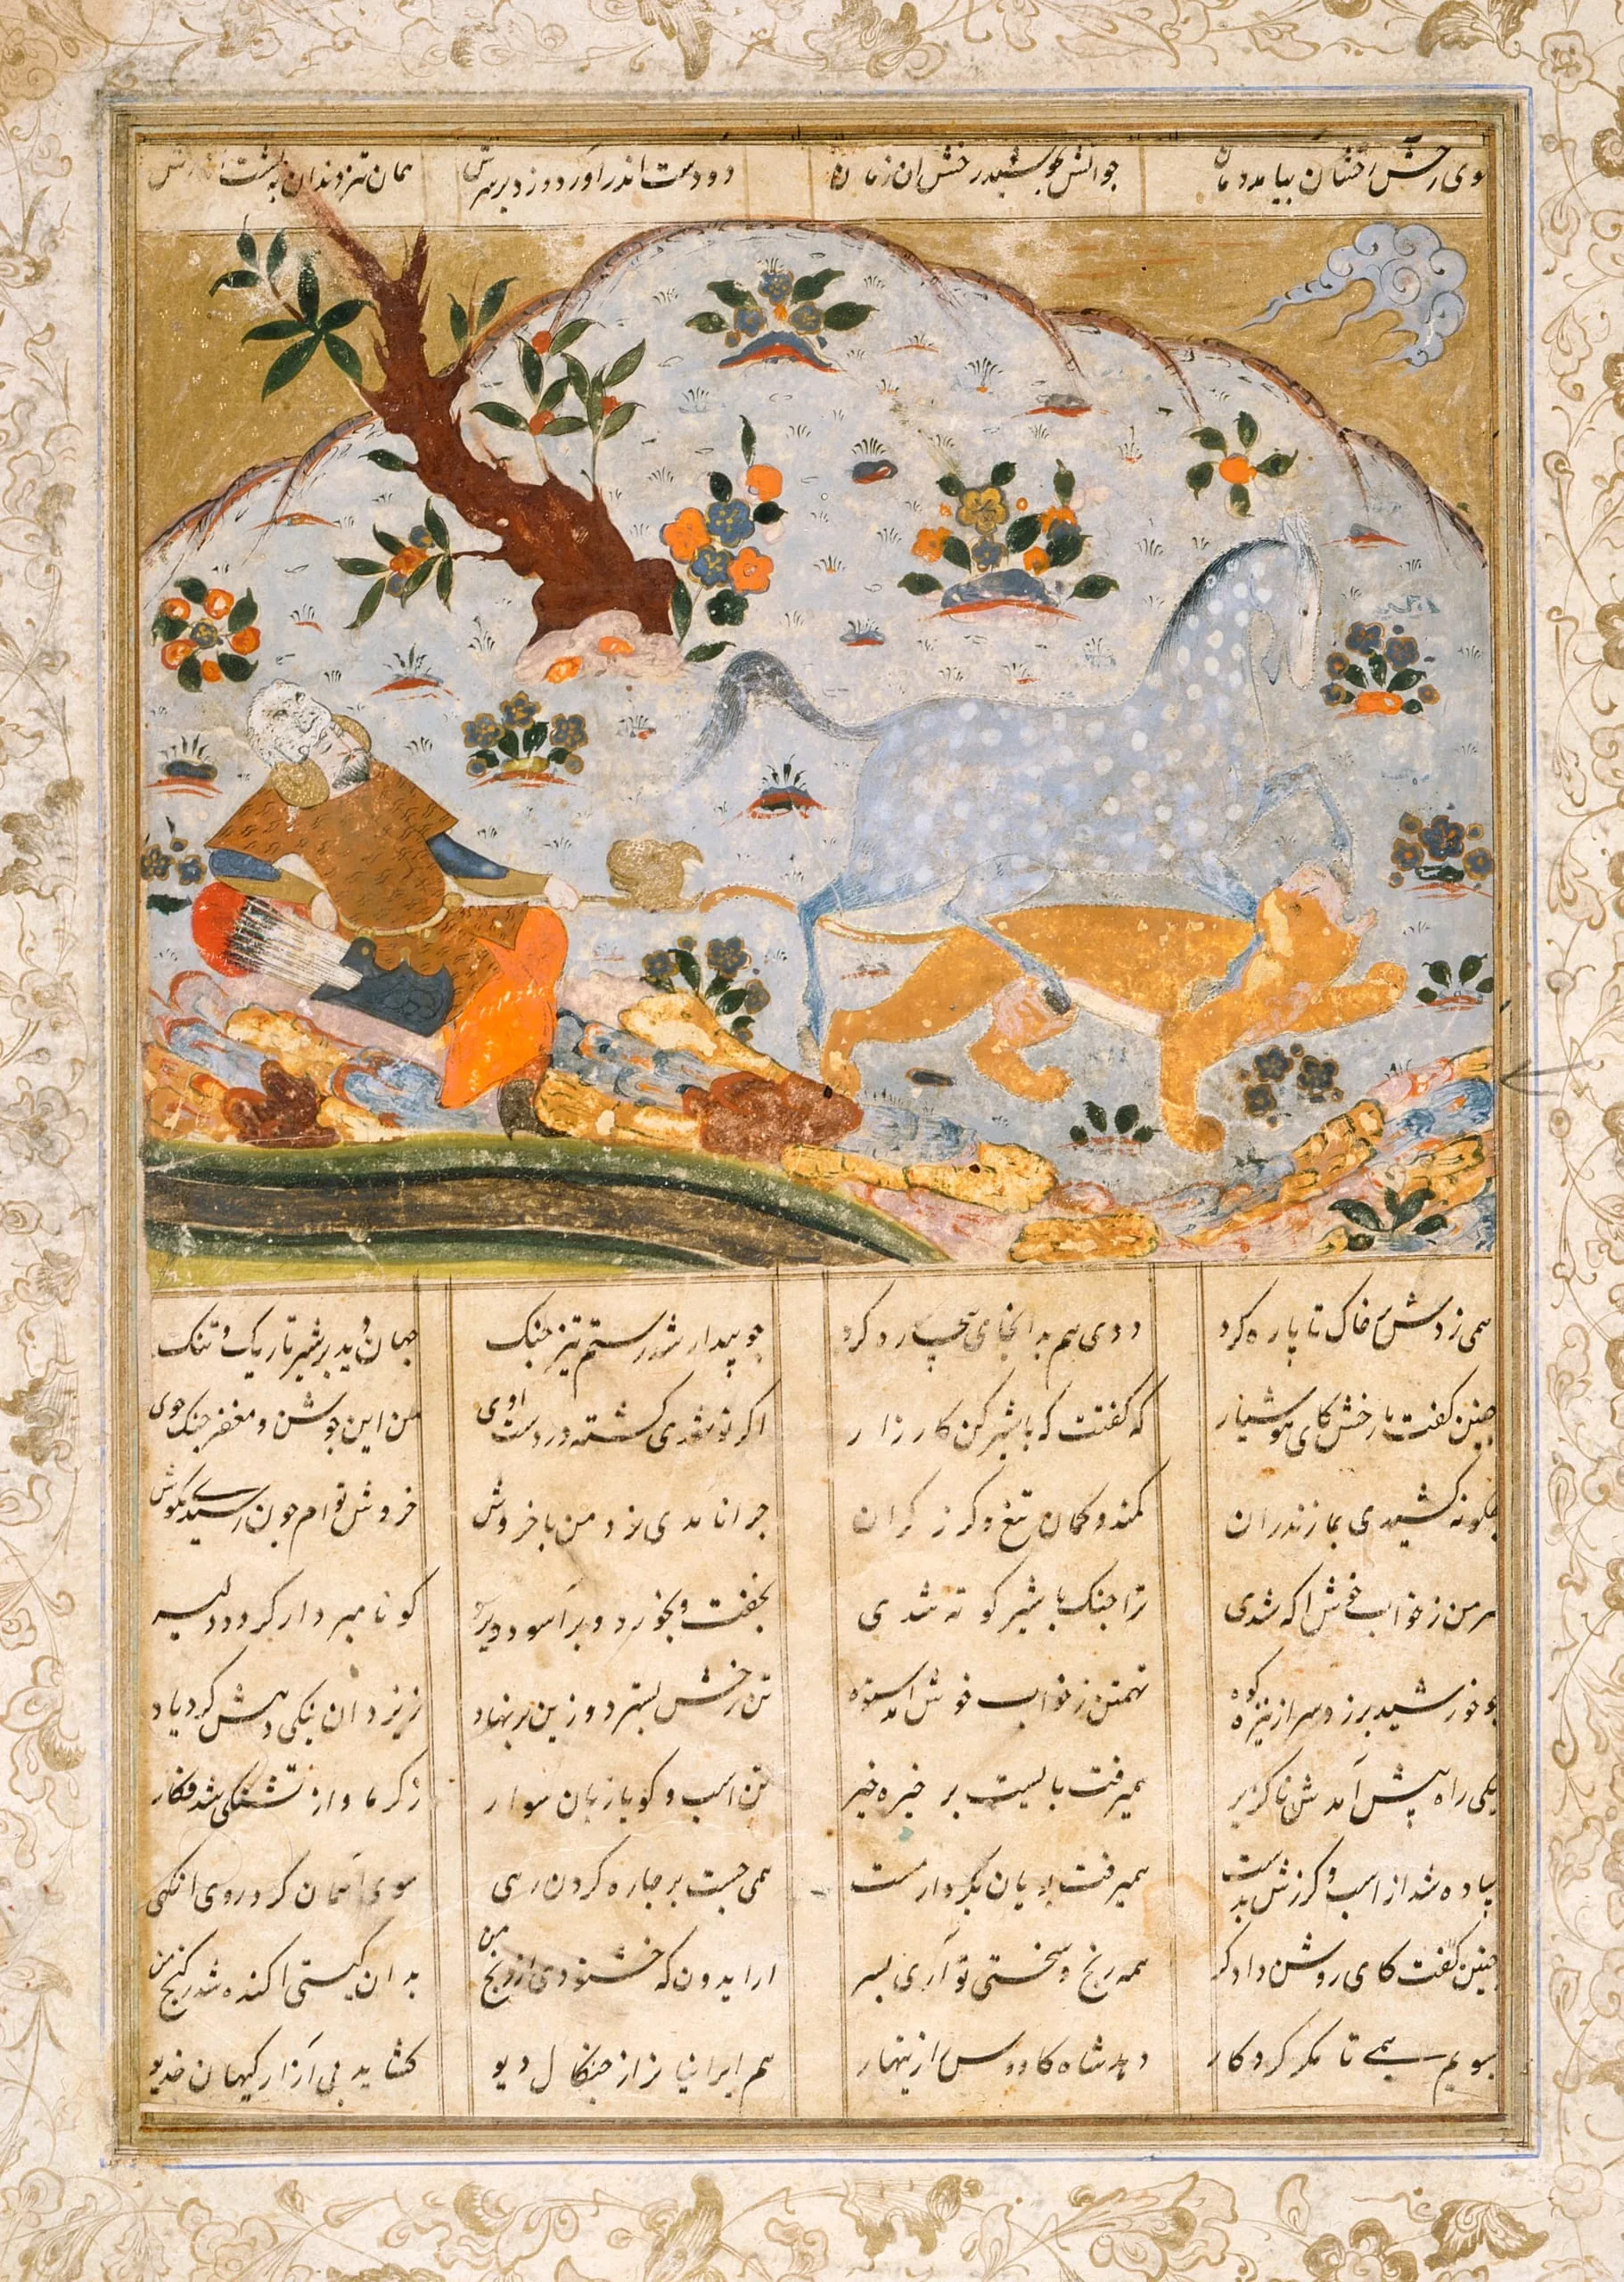 سوی رخش رخشان بیامد دمان جو اتش بجوشید رخش ان زمان دو دست اندر آورد و زد بر سرش همان تیز دندان به پشت اندرش
همی زدش بر خاک تا پاره کرد ددی هم بدانجای بیچاره کرد جو بیدار شد رستم تیز جنک جهان دید بر شیر تاریک و تنک
جنین کفت با رخش کای هوشیار که کفتت که با شیر کن کارزار اکر تو شدی کشته در دست اوی من این جوشن و مغفر جنک جوی
جکونه کشیدی بمازندران کمند و کمان تیغ و کرز کران جرا نامدی نزد من با خروش خروش توام جون رسیدی بکوش
سرم کر ز خواب خوش اکه شدی ترا جنک با شیر کوته شدی بخفت و بخورد و براسود دیر کو نامبردار کرد دلیر
جو خورشید برزد سر از تیره کوه تهمتن ز خواب خوش آمد ستوه تن رخش بسترد و زین برنهاد ز یزدان نیکی دهش کرد یاد
یکی راه پیش آمدش ناکزیر همیرفت بایست بر خیره خیر تن اسب و کویا زبان سوار ز کرما و از تشنکی شد فکار
پیاده شد از اسب و کرزش بدست همیرفت پویان بکردار مست همی جست بر جاره کردن رهی سوی آسمان کرد روی انکهی
جنین کفت کای روشن دادکر همه رنج و سختی تو آری بسر ار ایدون که خشنودی از رنج من بدان کیتی اکنده شد کنج من
بپویم همی تا مکر کردکار دهد شاه کاووس را زینهار هم ایرانیا نرا از جنکال دیو کشاید بی آزار کیهان خدیو